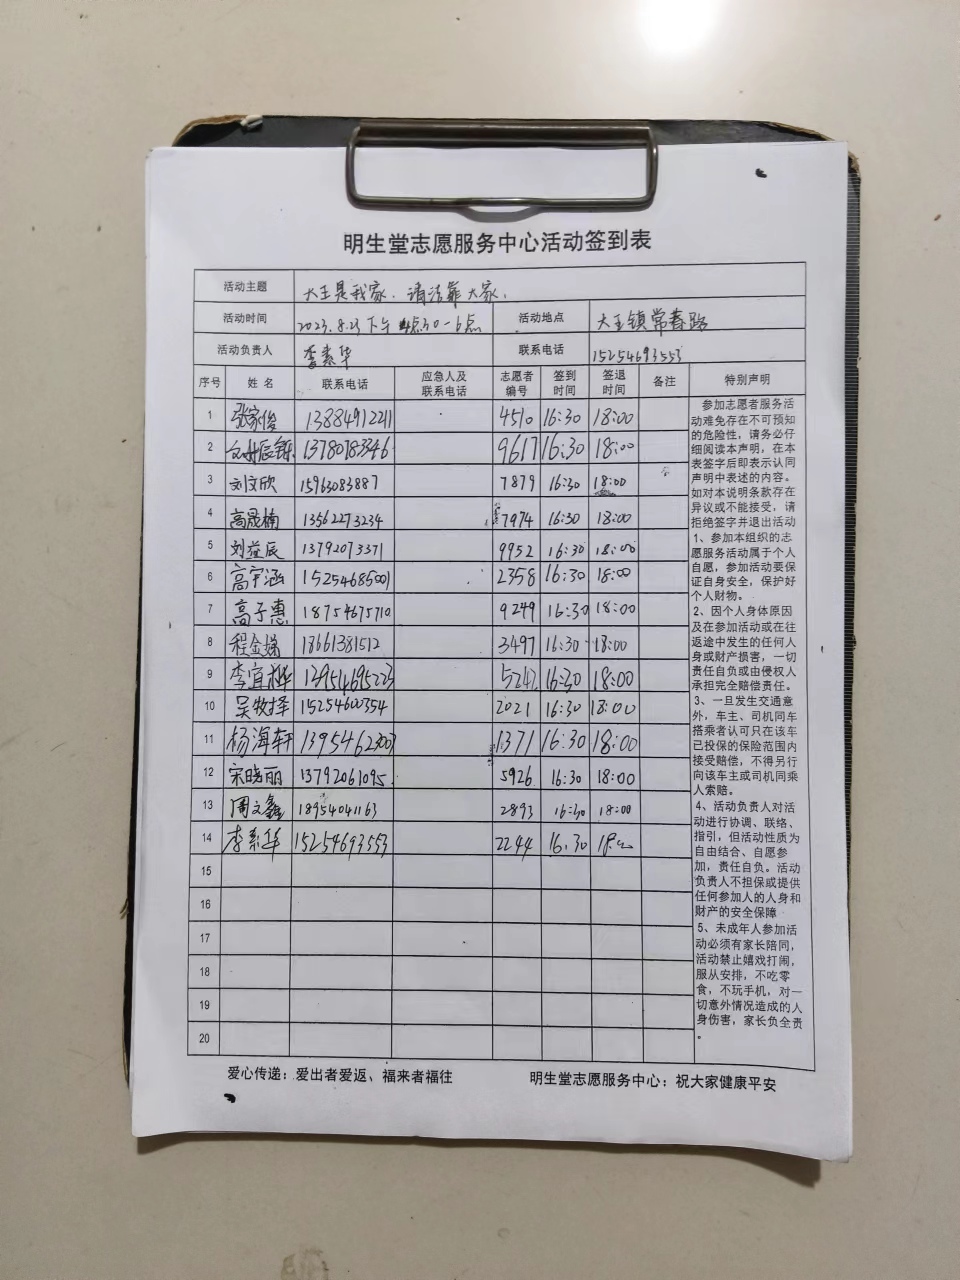 明生堂志愿服务中心活动签到表
活动主题 大王是我家、清洁靠大家、
活动时间 2023.8.23下午4点30-6点 活动地点 大王镇常春路
活动负责人 李素华 联系电话 15254693553
序号 姓名 联系电话 应急人及联系电话 志愿者编号 签到时间 签退时间 备注 特别声明
1 张家俊 13884912211 4510 16:30 18:00
2 13780782346 9617 16:30 18:00
3 刘文欣 15963083887 7879 16:30 18:00
4 高晟楠 13562273234 7974 16:30 18:00
5 刘益辰 13792073371 9952 16:30 18:00
6 高宇涵 15254685001 2358 16:30 18:00
7 高子惠 18754675710 9249 16:30 18:00
8 程金瑞 18661381512 3497 16:30 18:00
9 李宜桦 13954695223 5242 16:30 18:00
10 吴牧择 15254600354 2021 16:30 18:00
11 杨海轩 1371 16:30 18:00
12 宋晓丽 13792061095 5926 16:30 18:00
13 周文鑫 18954041163 2893 16:30 18:00
14 李素华 15254693553 2244 16:30 18:00
15
16
17
18
19
20
参加志愿者服务活
动难免存在不可预知
的危险性，请务必仔
细阅读本声明，在本
表签字后即表示认同
声明中表述的内容。
如对本说明条款存在
异议或不能接受，请
拒绝签字并退出活动
1、参加本组织的志
愿服务活动属于个人
自愿，参加活动要保
证自身安全，保护好
个人财物。
2、因个人身体原因
及在参加活动或在往
返途中发生的任何人
身或财产损害，一切
责任自负或由侵权人
承担完全赔偿责任。
3、一旦发生交通意
外，车主、司机同车
搭乘者认可只在该车
已投保的保险范围内
接受赔偿，不得另行
向该车主或司机同乘
人索赔。
4、活动负责人对活
动进行协调、联络、
指引，但活动性质为
自由结合、自愿参
加，责任自负。活动
负责人不担保或提供
任何参加人的人身和
财产的安全保障
5、未成年人参加活
动必须有家长陪同，
活动禁止嬉戏打闹，
服从安排，不吃零
食，不玩手机，对一
切意外情况造成的人
身伤害，家长负全责
。
爱心传递：爱出者爱返、福来者福往 明生堂志愿服务中心：祝大家健康平安